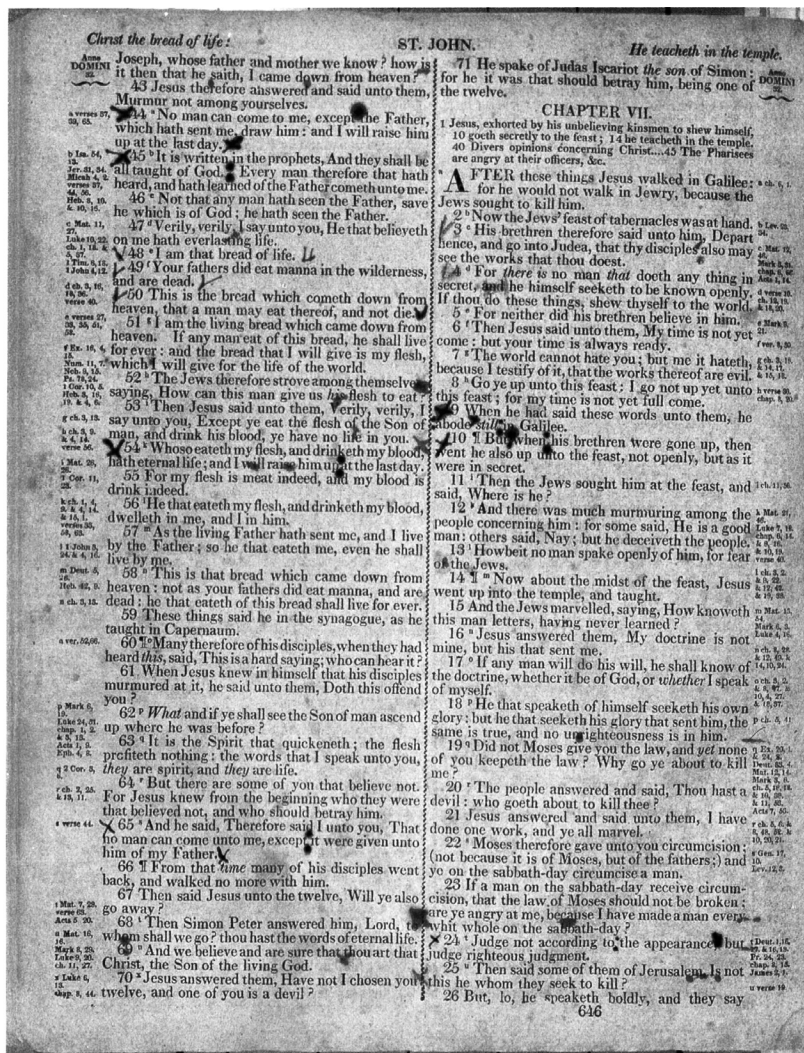 Christ the bread of life:
ST. JOHN.
He teacheth in the temple.
Anno
DOMINI
32.
Joseph, whose father and mother we know? how is
it then that he saith, I came down from heaven?
43 Jesus therefore answered and said unto them,
Murmur not among yourselves.
44 a No man can come to me, except the Father,
which hath sent me, draw him: and I will raise him
up at the last day.
45 b It is written in the prophets, And they shall be
all taught of God. Every man therefore that hath
heard, and hath learned of the Father cometh unto me.
46 c Not that any man hath seen the Father, save
he which is of God; he hath seen the Father.
47 d Verily, verily, I say unto you, He that believeth
on me hath everlasting life.
48 e I am that bread of life.
49 f Your fathers did eat manna in the wilderness,
and are dead.
50 This is the bread which cometh down from
heaven, that a man may eat thereof, and not die.
51 g I am the living bread which came down from
heaven. If any man eat of this bread, he shall live
for ever: and the bread that I will give is my flesh,
which I will give for the life of the world.
52 h The Jews therefore strove among themselves,
saying, How can this man give us his flesh to eat?
53 i Then Jesus said unto them, Verily, verily, I
say unto you, Except ye eat the flesh of the Son of
man, and drink his blood, ye have no life in you.
54 k Whoso eateth my flesh, and drinketh my blood,
hath eternal life; and I will raise him up at the last day.
55 For my flesh is meat indeed, and my blood is
drink indeed.
56 l He that eateth my flesh, and drinketh my blood,
dwelleth in me, and I in him.
57 m As the living Father hath sent me, and I live
by the Father; so he that eateth me, even he shall
live by me.
58 n This is that bread which came down from
heaven: not as your fathers did eat manna, and are
dead: he that eateth of this bread shall live for ever.
59 These things said he in the synagogue, as he
taught in Capernaum.
60 ¶ o Many therefore of his disciples, when they had
heard this, said, This is a hard saying; who can hear it?
61 When Jesus knew in himself that his disciples
murmured at it, he said unto them, Doth this offend
you?
62 p What and if ye shall see the Son of man ascend
up where he was before?
63 q It is the Spirit that quickeneth; the flesh
profiteth nothing: the words that I speak unto you,
they are spirit, and they are life.
64 r But there are some of you that believe not.
For Jesus knew from the beginning who they were
that believed not, and who should betray him.
65 s And he said, Therefore said I unto you, That
no man can come unto me, except it were given unto
him of my Father.
66 ¶ From that time many of his disciples went
back, and walked no more with him.
67 Then said Jesus unto the twelve, Will ye also
go away?
68 t Then Simon Peter answered him, Lord, to
whom shall we go? thou hast the words of eternal life.
69 u And we believe and are sure that thou art that
Christ, the Son of the living God.
70 x Jesus answered them, Have not I chosen you
twelve, and one of you is a devil?
a verses 37,
39, 65.
b Isa. 54,
13.
Jer. 31, 34.
Micah 4, 2.
c Mat. 11,
27.
Luke 10, 22.
verse 40.
g ch. 3, 13.
verse 56.
i Mat. 26,
26.
m Deut. 5,
26.
n ch. 3, 13.
p Mark 6,
19.
Luke 24, 51.
Acts 1, 9.
Eph. 4, 8.
q 2 Cor. 3,
6.
r ch. 2, 25.
& 13, 11.
s verse 44.
t Mat. 7, 29.
verse 63.
Acts 5 20.
u Mat. 16,
16.
Mark 8, 29.
Luke 9, 20.
ch. 11, 27.
x Luke 6,
13.
chap. 8, 44.
71 He spake of Judas Iscariot the son of Simon:
for he it was that should betray him, being one of
the twelve.
Anno
DOMINI
32.
CHAPTER VII.
1 Jesus, exhorted by his unbelieving kinsmen to shew himself,
10 goeth secretly to the feast; 14 he teacheth in the temple.
40 Divers opinions concerning Christ....45 The Pharisees
are angry at their officers, &c.
a AFTER these things Jesus walked in Galilee:
for he would not walk in Jewry, because the
Jews sought to kill him.
2 b Now the Jews' feast of tabernacles was at hand.
3 c His brethren therefore said unto him, Depart
hence, and go into Judea, that thy disciples also may
see the works that thou doest.
4 d For there is no man that doeth any thing in
secret, and he himself seeketh to be known openly.
If thou do these things, shew thyself to the world.
5 e For neither did his brethren believe in him.
6 f Then Jesus said unto them, My time is not yet
come: but your time is always ready.
7 g The world cannot hate you; but me it hateth,
because I testify of it, that the works thereof are evil.
8 h Go ye up unto this feast: I go not up yet unto
this feast; for my time is not yet full come.
9 When he had said these words unto them, he
abode still in Galilee.
10 ¶ But when his brethren were gone up, then
went he also up unto the feast, not openly, but as it
were in secret.
11 i Then the Jews sought him at the feast, and
said, Where is he?
12 k And there was much murmuring among the
people concerning him: for some said, He is a good
man: others said, Nay; but he deceiveth the people.
13 l Howbeit no man spake openly of him, for fear
of the Jews.
14 ¶ m Now about the midst of the feast, Jesus
went up into the temple, and taught.
15 And the Jews marvelled, saying, How knoweth
this man letters, having never learned?
16 n Jesus answered them, My doctrine is not
mine, but his that sent me.
17 o If any man will do his will, he shall know of
the doctrine, whether it be of God, or whether I speak
of myself.
18 p He that speaketh of himself seeketh his own
glory: but he that seeketh his glory that sent him, the
same is true, and no unrighteousness is in him.
19 q Did not Moses give you the law, and yet none
of you keepeth the law? Why go ye about to kill
me?
20 r The people answered and said, Thou hast a
devil: who goeth about to kill thee?
21 Jesus answered and said unto them, I have
done one work, and ye all marvel.
22 s Moses therefore gave unto you circumcision;
(not because it is of Moses, but of the fathers;) and
ye on the sabbath-day circumcise a man.
23 If a man on the sabbath-day receive circum-
cision, that the law of Moses should not be broken;
are ye angry at me, because I have made a man every
whit whole on the sabbath-day?
24 t Judge not according to the appearance, but
judge righteous judgment.
25 u Then said some of them of Jerusalem, Is not
this he whom they seek to kill?
26 But, lo, he speaketh boldly, and they say
a ch. 6, 1.
b Lev. 23,
34.
c Mat. 12,
46.
f ver. 8, 30.
i ch. 11, 56.
k Mat. 21,
46.
Luke 7, 16.
Mark 6, 2.
Luke 4, 16.
s Gen. 17,
10.
Lev. 12, 3.
u verse 19
646